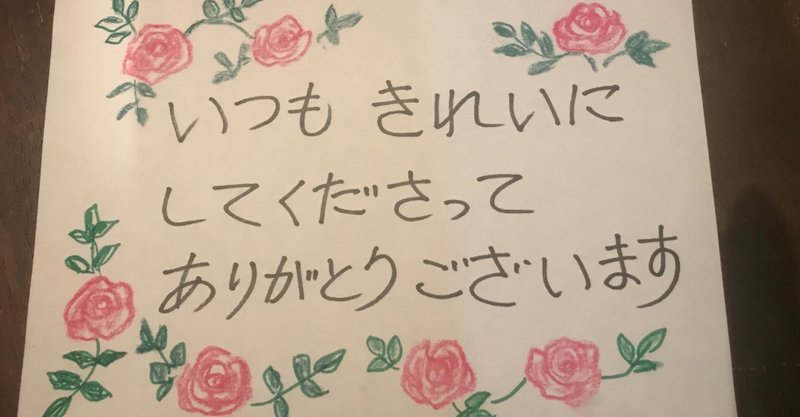 いつも きれいに
してくださって
ありがとうございます